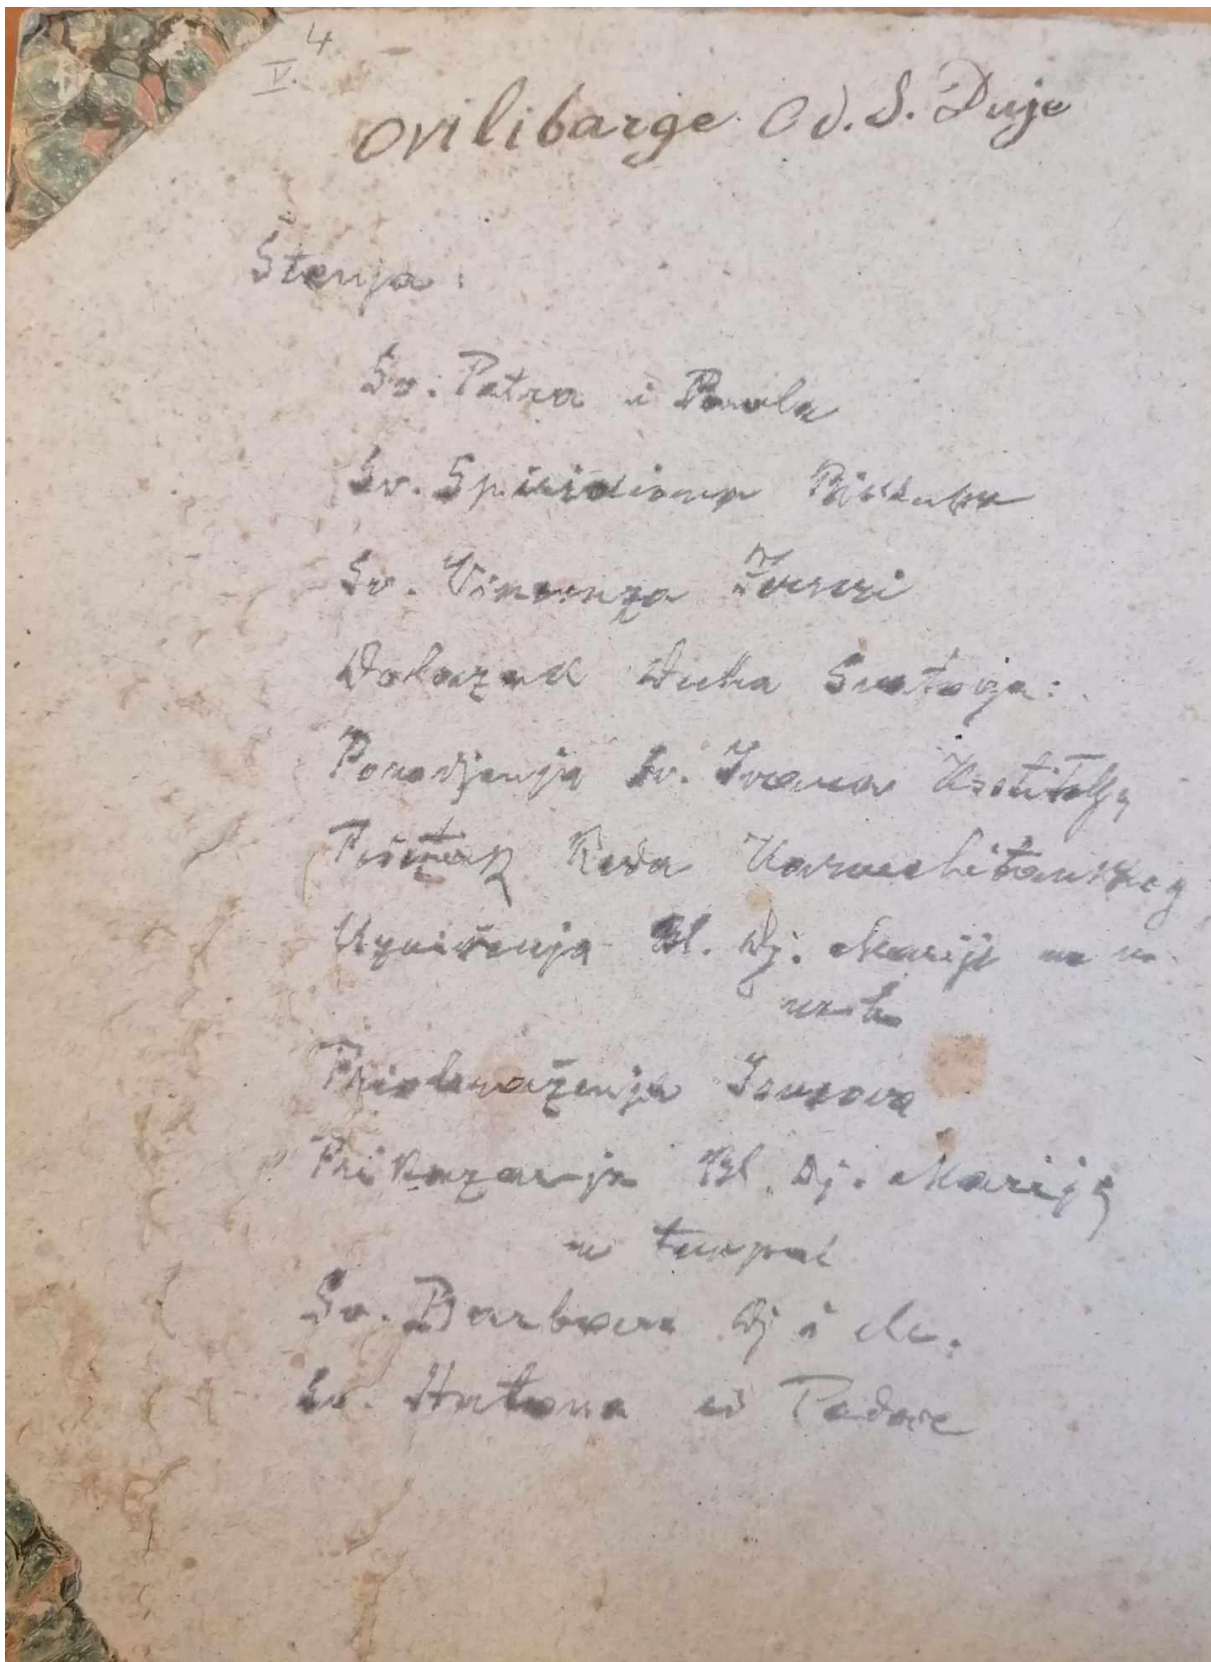 4
V.
ovilibarge Od. S. Duje
Štenja:
Sv. Petra i Pavla
Sv. Spiridiona Biskupa
Sv. Vincenza
Dolazak Duha Svetoga:
Porodjenja Sv. Ivana Krstitelja
Reda Karmelitanskog
Uzvišenja Bl. Dj. Marije na
Priobraženja Isusova
Prikazanja Bl. Dj. Marije
u templ
Sv. Barbare Dj i M.
Sv. Antona iz Padove